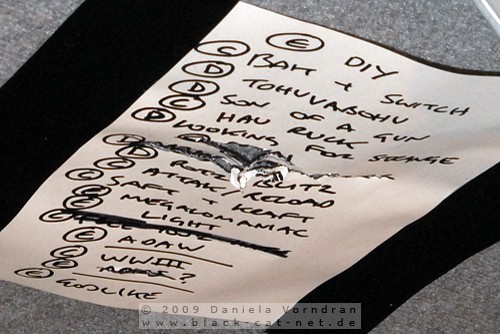 E DIY
C BAIT + SWITCH
D TOHUVABOHU
D SON OF A GUN
C HAU RUCK
D LOOKING FOR STRANGE
BLITZ
C ATTAK / RELOAD
C SAFT + KRAFT
MEGALOMANIAC
LIGHT
E ADAW
C WWIII
ADIOS?
E GODLIKE
© 2009 Daniela Vorndran
www.black-cat-net.de